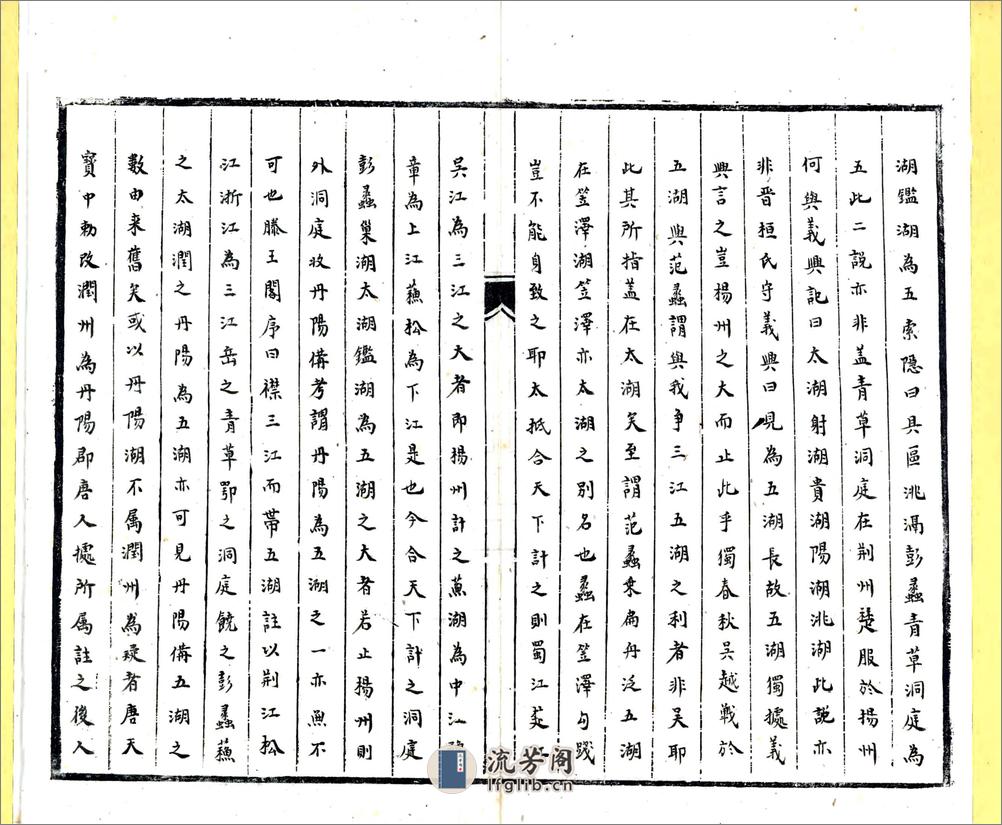 湖鑑湖為五索隱曰具區洮滆彭蠡青草洞庭為
五此二說亦非盖青草洞庭在荆州楚服於揚州
何與義興記曰太湖射湖貴湖陽湖洮湖此說亦
非晉桓氏守義興曰見為五湖長故五湖獨據義
興言之豈揚州之大而止此乎獨春秋吳越戰於
五湖與范蠡謂與我争三江五湖之利者非吴耶
此其所指盖在太湖矣至謂范蠡乗扁丹泛五湖
在笠澤湖笠澤亦太湖之别名也蠡在笠澤勾踐
豈不能身致之耶太抵合天下計之則蜀江
吴江為三江之大者即揚州計之蕪湖為中江
章為上江蘓松為下江是也今合天下計之洞庭
彭蠡巢湖太湖鑑湖為五湖之大者若止揚州則
外洞庭收丹陽備考謂丹陽為五湖之一亦無不
可也滕王閣序曰襟三江而帶五湖註以荆江松
江浙江為三江岳之青草鄂之洞庭饒之彭蠡蘓
之太湖潤之丹陽為五湖亦可見丹陽備五湖之
數由来舊矣或以丹陽湖不属潤州為疑者唐天
寳中勅改潤州為丹陽郡唐人據所属註之後人
流芳阁
lfglib.cn